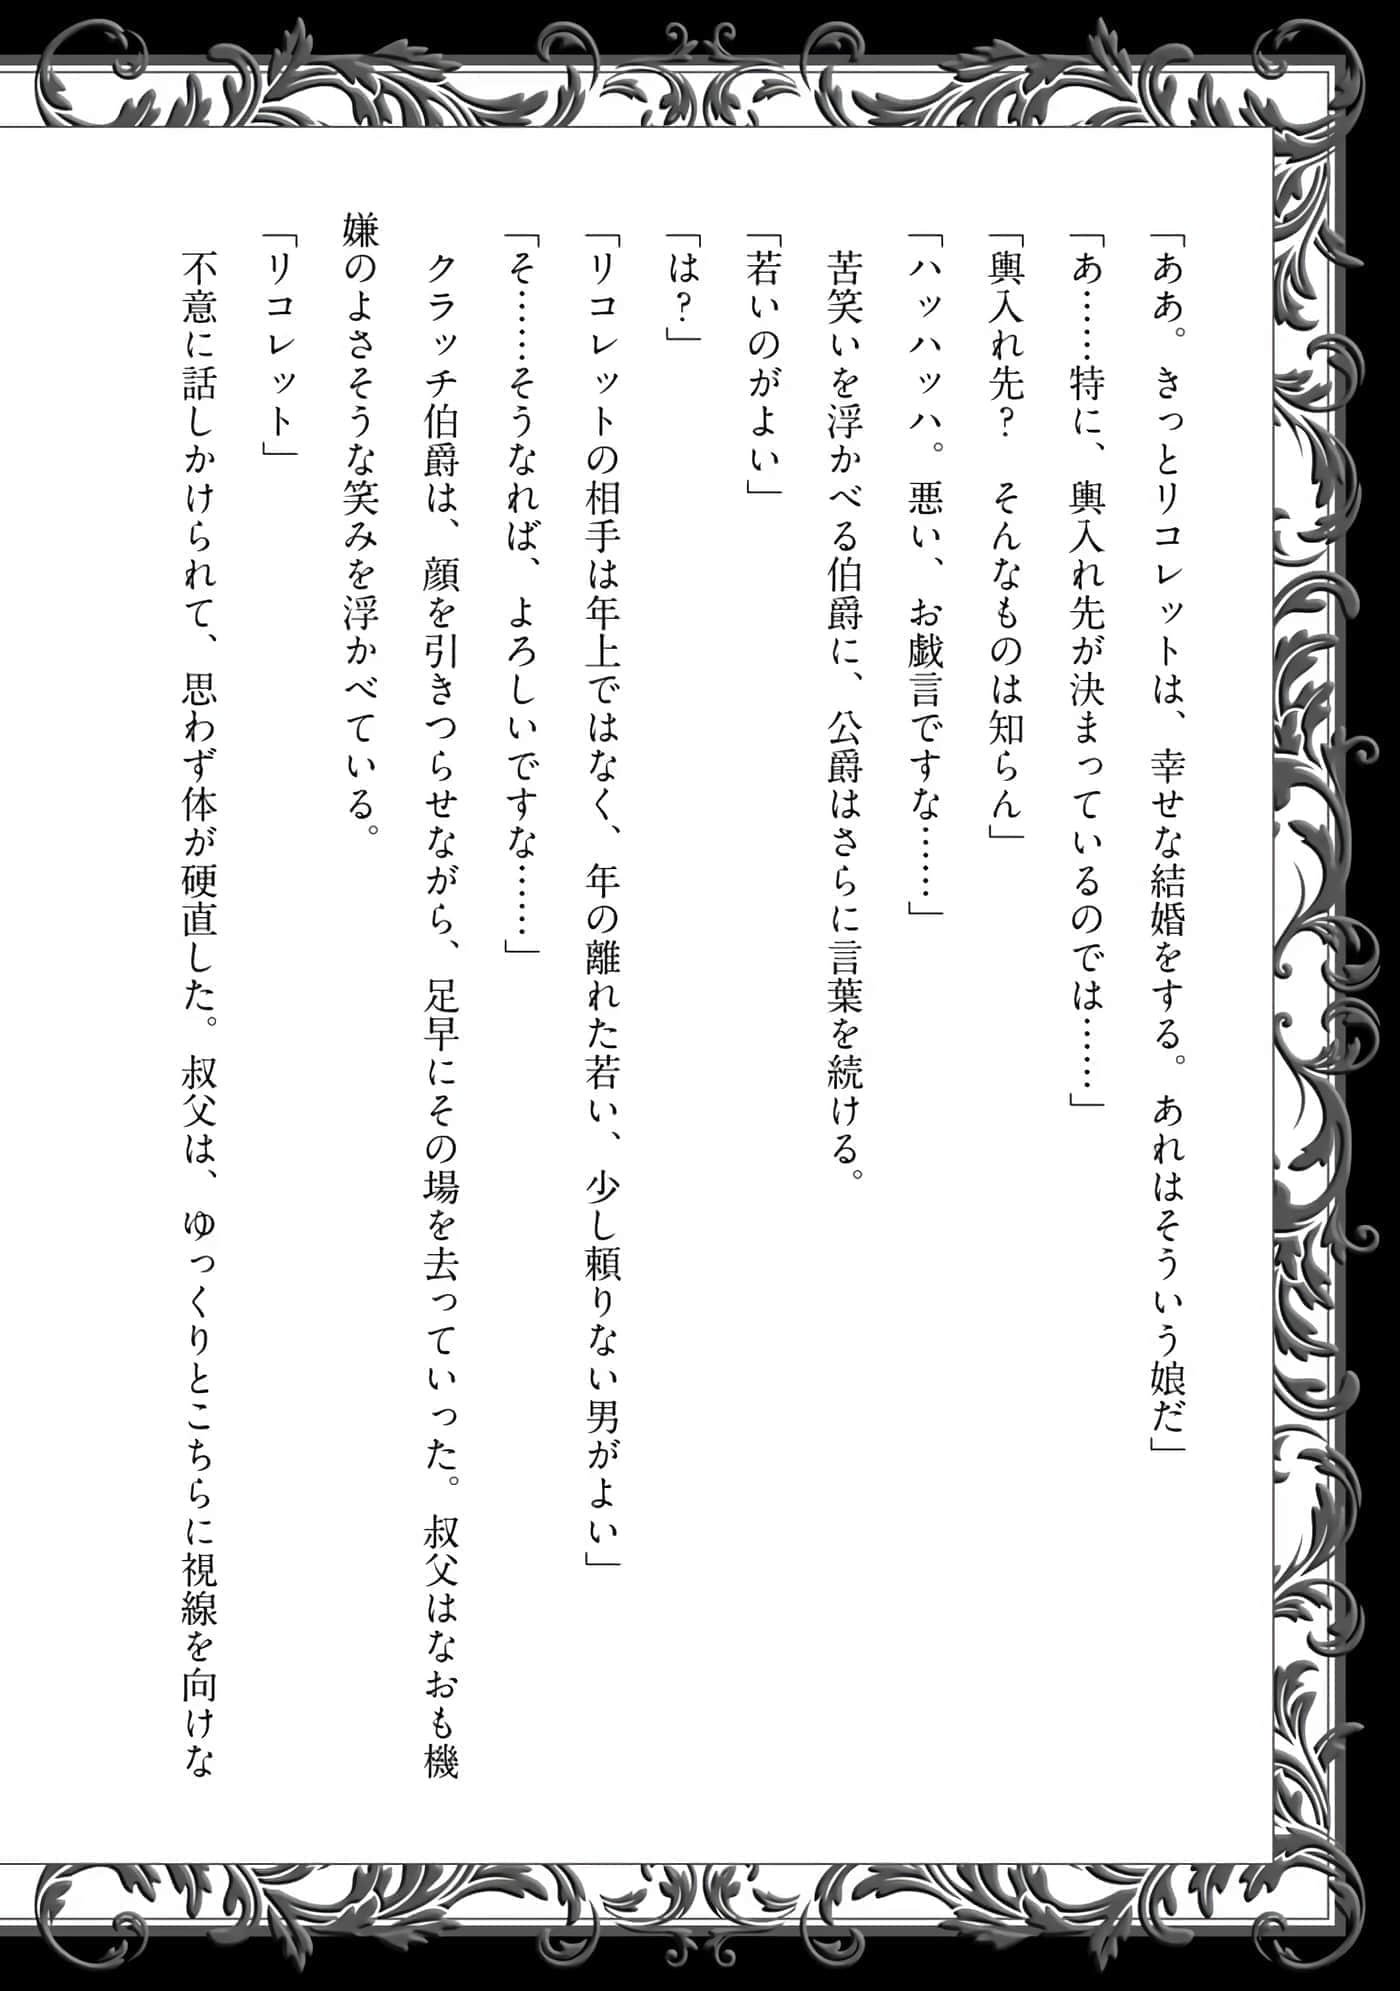 「ああ。きっとリコレットは、幸せな結婚をする。あれはそういう娘だ」
「あ……特に、輿入れ先が決まっているのでは……」
「輿入れ先？　そんなものは知らん」
「ハッハッハ。悪い、お戯言ですな……」
　苦笑いを浮かべる伯爵に、公爵はさらに言葉を続ける。
「若いのがよい」
「は？」
「リコレットの相手は年上ではなく、年の離れた若い、少し頼りない男がよい」
「そ……そうなれば、よろしいですな……」
　クラッチ伯爵は、顔を引きつらせながら、足早にその場を去っていった。叔父はなおも機
嫌のよさそうな笑みを浮かべている。
「リコレット」
　不意に話しかけられて、思わず体が硬直した。叔父は、ゆっくりとこちらに視線を向けな